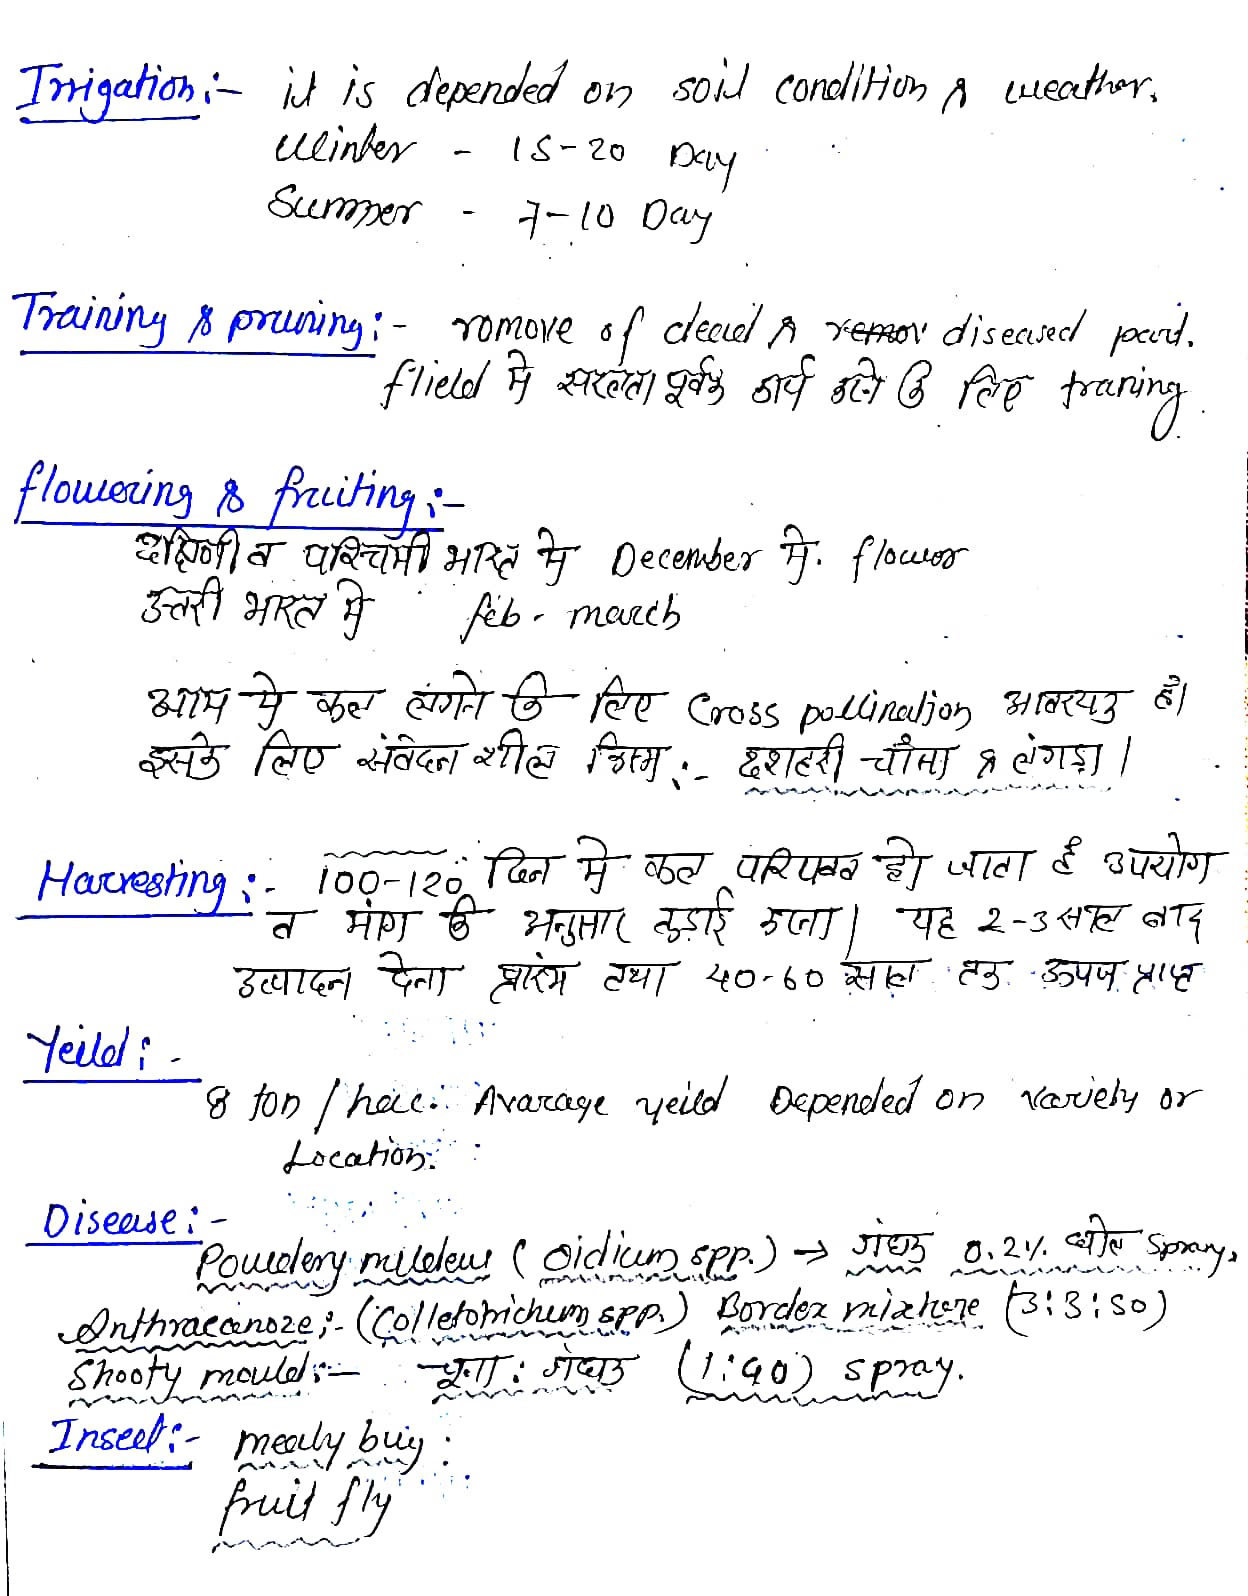 Irrigation :- it is depended on soil condition & weather.
Winter - 15-20 Day
Summer - 7-10 Day
Training & pruning :- romove of dead & remov diseased part.
flield मे सरलता पूर्वक कार्य करने के लिए traning
flowering & fruiting :-
दक्षिणी व पश्चिमी भारत मे December मे. flower
उत्तरी भारत मे feb - march
आम मे फल लगने के लिए Cross pollination आवश्यक है।
इसके लिए संवेदनशील किस्म :- दशहरी चौसा & लंगड़ा।
Harvesting :- 100-120 दिन मे फल परिपक्व हो जाता है उपयोग
व मांग के अनुसार तुड़ाई करना। यह 2-3 साल बाद
उत्पादन देना प्रारंभ तथा 40-60 साल तक उपज प्राप्त
Yeild :-
8 ton / hac. Avarage yeild Depended on variety or
Location.
Disease :-
Powdery mildew ( Oidium spp. ) → गंधक 0.2% घोल spray.
Anthracanoze :- (Colletotrichum spp.) Bordex mixture (3:3:50)
Shooty mould :- चूना : गंधक (1:40) spray.
Insect :- mealy bug
fruit fly